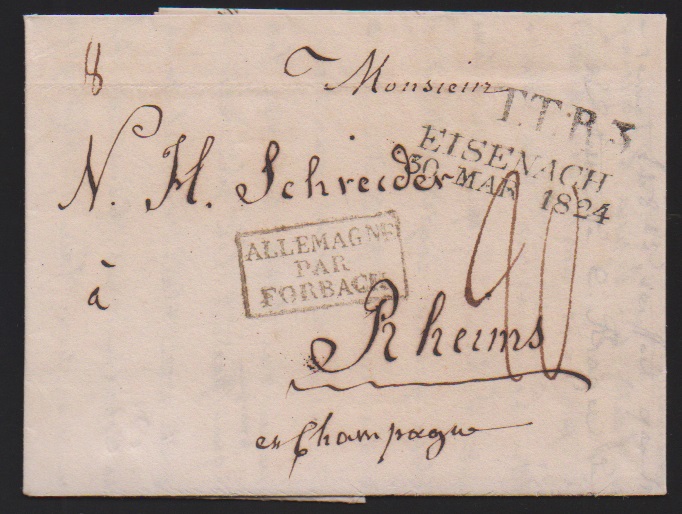 8
Monsieur
T.T.R.3
EISENACH
30. MAR 1824
N. H. Schreider
ALLEMAGNE
PAR
FORBACH
à
Rheims
en Champagne